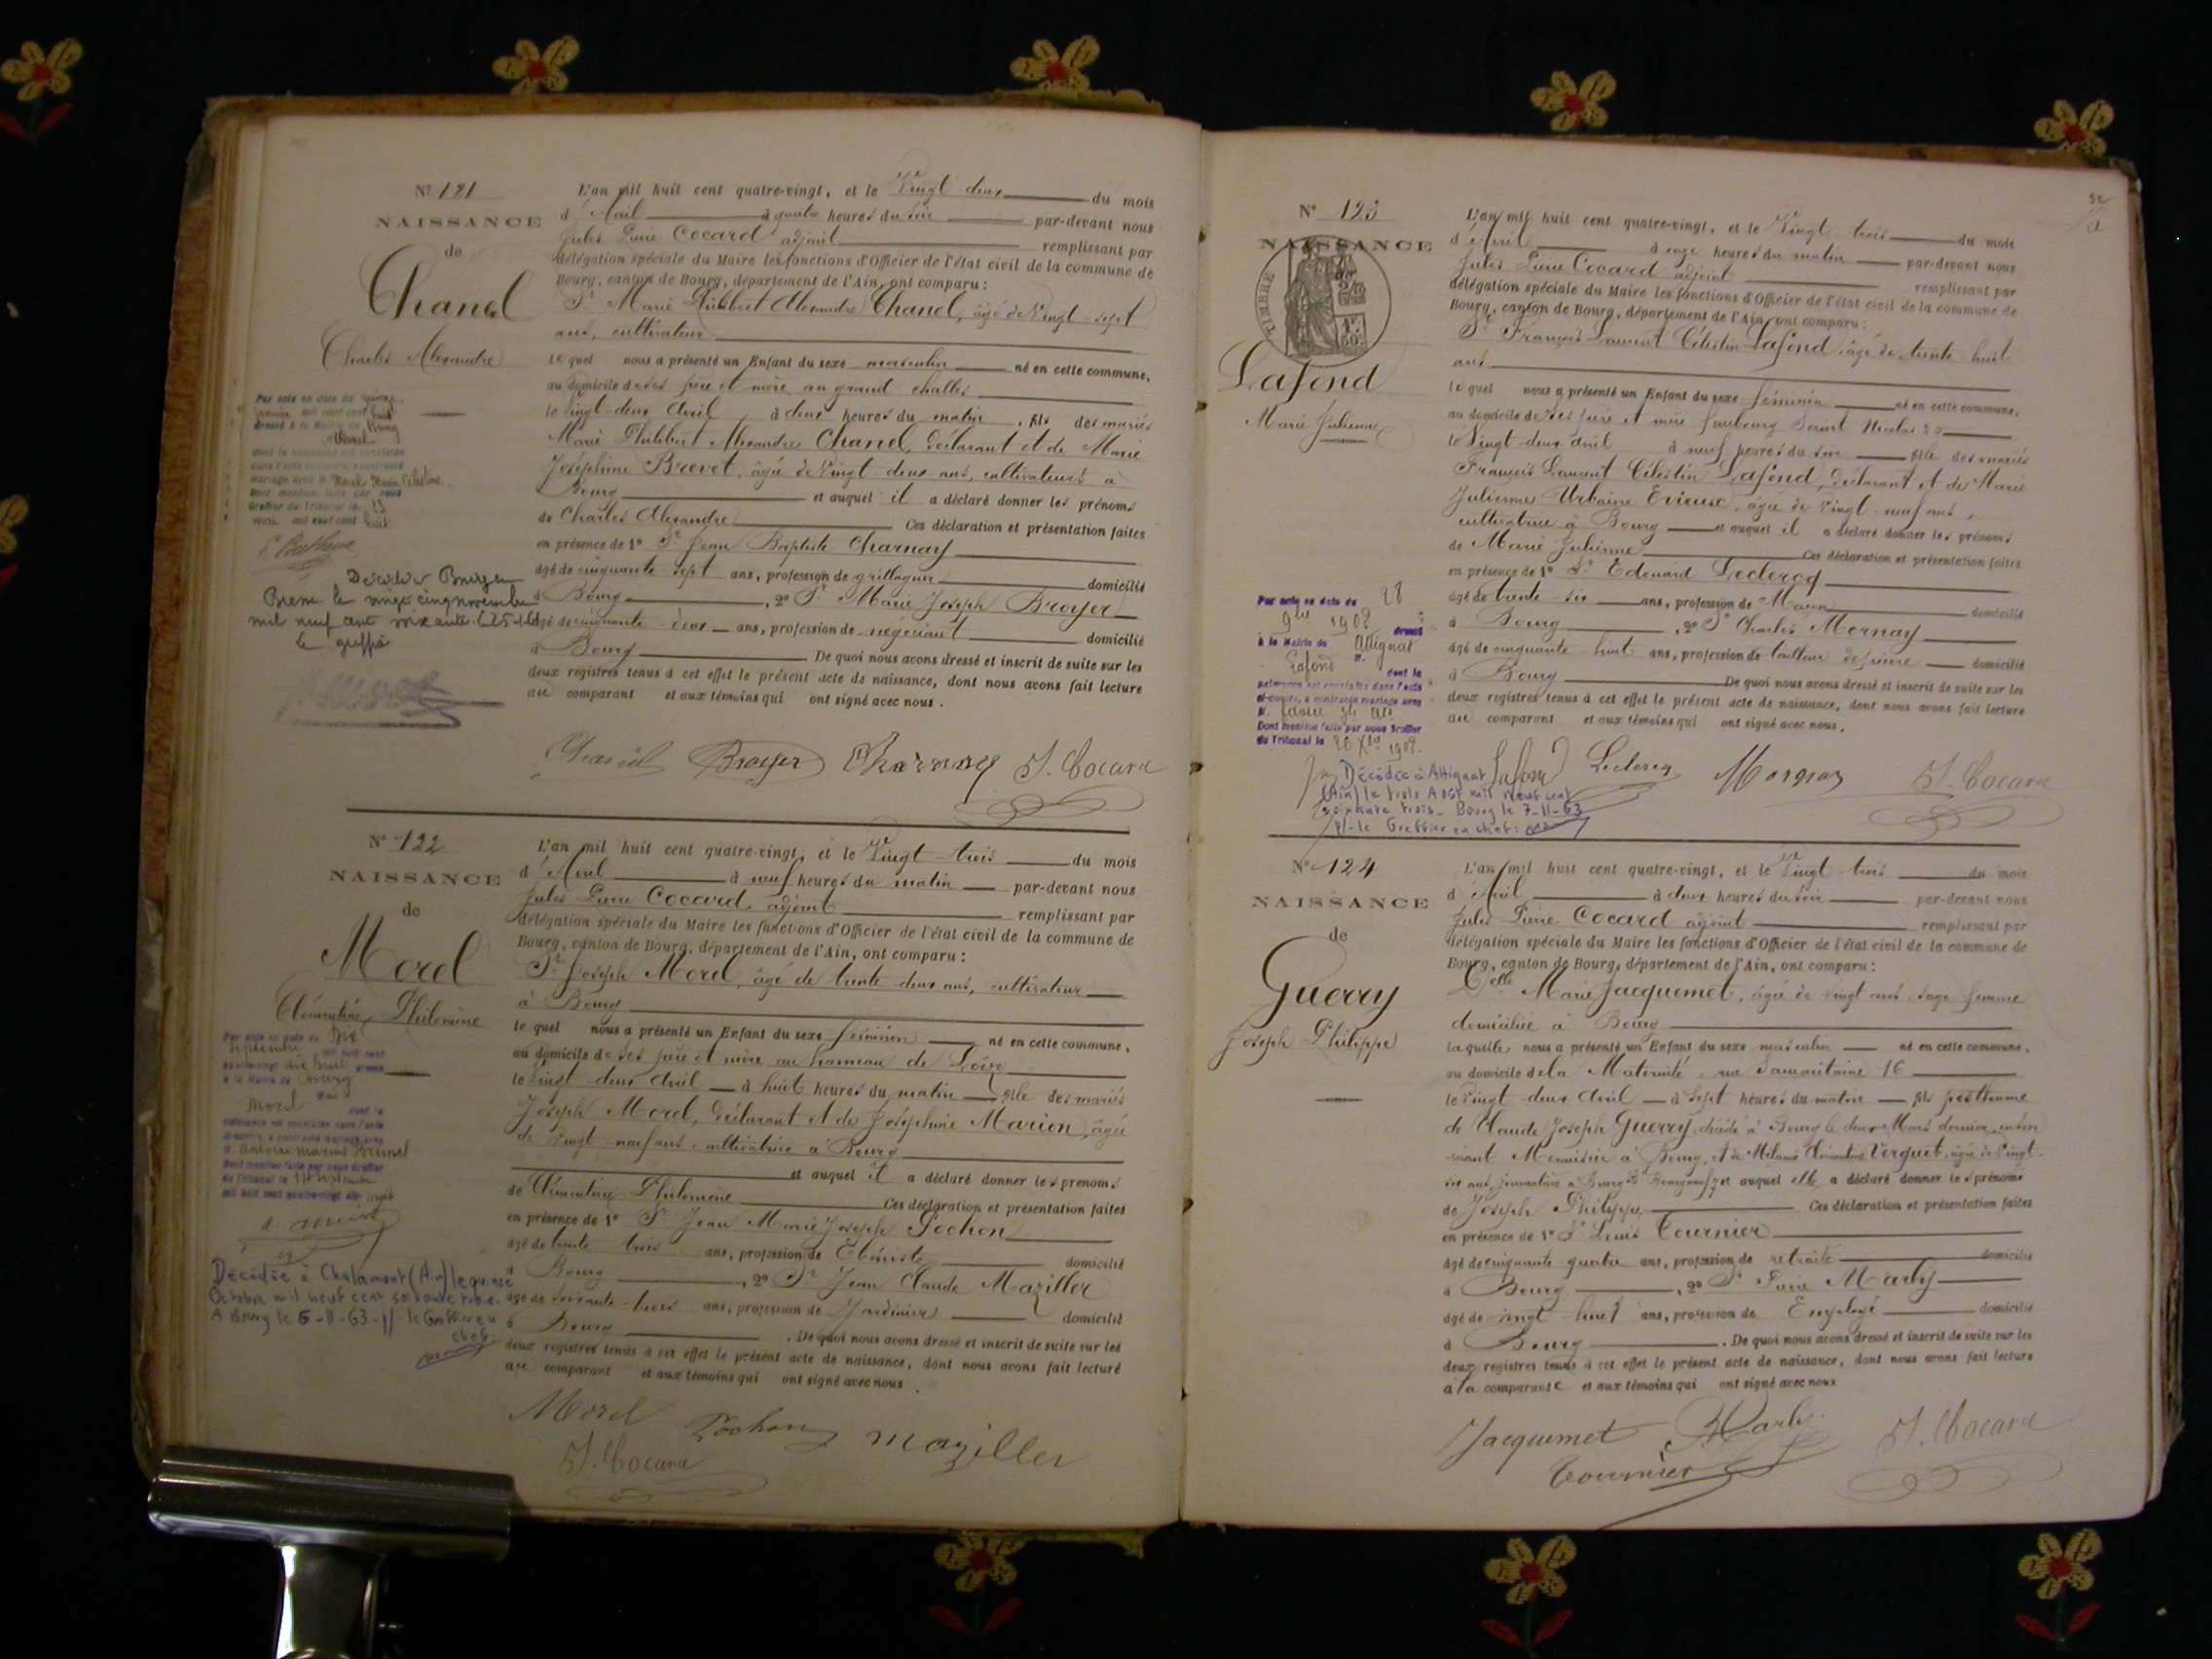 N° 121
NAISSANCE
de
Chanel
Charles Alexandre
Par acte en date du
dressé à la Mairie de Bourg
Chanel
dont la naissance est constatée
mariage avec la
Dont mention faite par nous
Greffier du Tribunal le 23
mai mil neuf cent huit
Décédé à Bourg en
Bresse le vingt cinq novembre
mil neuf cent soixante
Le greffier
L'an mil huit cent quatre-vingt, et le Vingt deux du mois
d'Avril à quatre heures du soir par-devant nous
Jules Pierre Cocard adjoint remplissant par
délégation spéciale du Maire les fonctions d'Officier de l'état civil de la commune de
Bourg, canton de Bourg, département de l'Ain, ont comparu :
Sr Marie Philibert Alexandre Chanel, âgé de Vingt-sept
ans, cultivateur
lequel nous a présenté un Enfant du sexe masculin né en cette commune,
au domicile de ses père et mère, au grand challes
le Vingt-deux Avril, à deux heures du matin, fils des mariés
Marie Philibert Alexandre Chanel, déclarant et de Marie
Joséphine Brevet, âgée de Vingt-deux ans, cultivateurs à
Bourg et auquel il a déclaré donner les prénoms
de Charles Alexandre Ces déclaration et présentation faites
en présence de 1° Sr Jean Baptiste Charnay
âgé de cinquante-sept ans, profession de grillageur domicilié
à Bourg, 2° Sr Marie Joseph Broyer
âgé de cinquante-deux ans, profession de négociant domicilié
à Bourg. De quoi nous avons dressé et inscrit de suite sur les
deux registres tenus à cet effet le présent acte de naissance, dont nous avons fait lecture
au comparant et aux témoins qui ont signé avec nous.
Chanel Broyer Charnay J. Cocard
N° 122
NAISSANCE
de
Morel
Clémentine Philomène
Par acte en date du dix
septembre mil huit cent
quatrevingt dix huit dressé
à la Mairie de Bourg
Morel dont la
naissance est constatée dans l'acte
ci-contre, a contracté mariage avec
Marius Brunel
Dont mention faite par nous Greffier
du Tribunal le septembre
mil huit cent quatre-vingt dix huit
Décédée à Chalamont (Ain) le quinze
Octobre mil neuf cent soixante trois.
A Bourg le 6-11-63 - p/ le Greffier en
chef:
L'an mil huit cent quatre-vingt, et le Vingt-trois du mois
d'Avril à neuf heures du matin par-devant nous
Jules Pierre Cocard adjoint remplissant par
délégation spéciale du Maire les fonctions d'Officier de l'état civil de la commune de
Bourg, canton de Bourg, département de l'Ain, ont comparu :
Sr Joseph Morel, âgé de trente-deux ans, cultivateur
à Bourg
lequel nous a présenté un Enfant du sexe féminin né en cette commune,
au domicile de ses père et mère au hameau de
le Vingt-deux Avril à huit heures du matin fille des mariés
Joseph Morel, déclarant et de Joséphine Marion, âgée
de Vingt-neuf ans, cultivatrice à Bourg
et auquel il a déclaré donner les prénoms
de Clémentine Philomène Ces déclaration et présentation faites
en présence de 1° Sr Jean Marie Joseph Pochon
âgé de trente-trois ans, profession de Ebéniste domicilié
à Bourg, 2° Sr Jean Claude Maziller
âgé de soixante-trois ans, profession de Jardinier domicilié
à Bourg. De quoi nous avons dressé et inscrit de suite sur les
deux registres tenus à cet effet le présent acte de naissance, dont nous avons fait lecture
au comparant et aux témoins qui ont signé avec nous.
Morel Pochon Maziller
J. Cocard
N° 123
NAISSANCE
TIMBRE
Lafond
Marie Julienne
Par acte en date du 28
9bre 1908 dressé
à la Mairie de Attignat
Lafond dont la
naissance est constatée dans l'acte
ci-contre, a contracté mariage avec
Dont mention faite par nous Greffier
du Tribunal le 1908.
Décédée à Attignat
(Ain) le trois Août mil neuf cent
soixante trois. Bourg le 7-11-63
p/-le Greffier en chef:
L'an mil huit cent quatre-vingt, et le Vingt-trois du mois
d'Avril à onze heures du matin par-devant nous
Jules Pierre Cocard adjoint remplissant par
délégation spéciale du Maire les fonctions d'Officier de l'état civil de la commune de
Bourg, canton de Bourg, département de l'Ain, ont comparu :
Sr François Laurent Célestin Lafond, âgé de trente-huit
ans
lequel nous a présenté un Enfant du sexe féminin né en cette commune,
au domicile de ses père et mère faubourg Saint Nicolas
le Vingt-deux Avril à neuf heures du soir fille des mariés
François Laurent Célestin Lafond, déclarant et de Marie
Julienne Urbaine Erieux, âgée de Vingt-neuf ans,
cultivatrice à Bourg et auquel il a déclaré donner les prénoms
de Marie Julienne Ces déclaration et présentation faites
en présence de 1° Sr Edouard Leclercq
âgé de trente-six ans, profession de Maçon domicilié
à Bourg, 2° Sr Charles Mornay
âgé de cinquante-huit ans, profession de tailleur de pierre domicilié
à Bourg De quoi nous avons dressé et inscrit de suite sur les
deux registres tenus à cet effet le présent acte de naissance, dont nous avons fait lecture
au comparant et aux témoins qui ont signé avec nous.
Lafond Leclercq J. Cocard
N° 124
NAISSANCE
de
Guerry
Joseph Philippe
L'an mil huit cent quatre-vingt, et le Vingt-trois du mois
d'Avril à deux heures du soir par-devant nous
Jules Pierre Cocard adjoint remplissant par
délégation spéciale du Maire les fonctions d'Officier de l'état civil de la commune de
Bourg, canton de Bourg, département de l'Ain, ont comparu :
Delle Marie Jacquemet, âgée de vingt ans, sage-femme
domiciliée à Bourg
laquelle nous a présenté un Enfant du sexe masculin né en cette commune,
au domicile de la Maternité, rue Samaritaine 16
le Vingt-deux Avril à Sept heures du matin fils posthume
de Claude Joseph Guerry, décédé à Bourg le deux Mars dernier,
vivant Menuisier à Bourg, et de Mélanie Verguet, âgée de Vingt-
six ans, journalière à Bourg et auquel elle a déclaré donner les prénoms
de Joseph Philippe Ces déclaration et présentation faites
en présence de 1° Sr Louis Tournier
âgé de cinquante-quatre ans, profession de retraité domicilié
à Bourg, 2° Sr Marly
âgé de vingt-huit ans, profession de Employé domicilié
à Bourg. De quoi nous avons dressé et inscrit de suite sur les
deux registres tenus à cet effet le présent acte de naissance, dont nous avons fait lecture
à la comparante et aux témoins qui ont signé avec nous
Jacquemet Marly J. Cocard
Tournier